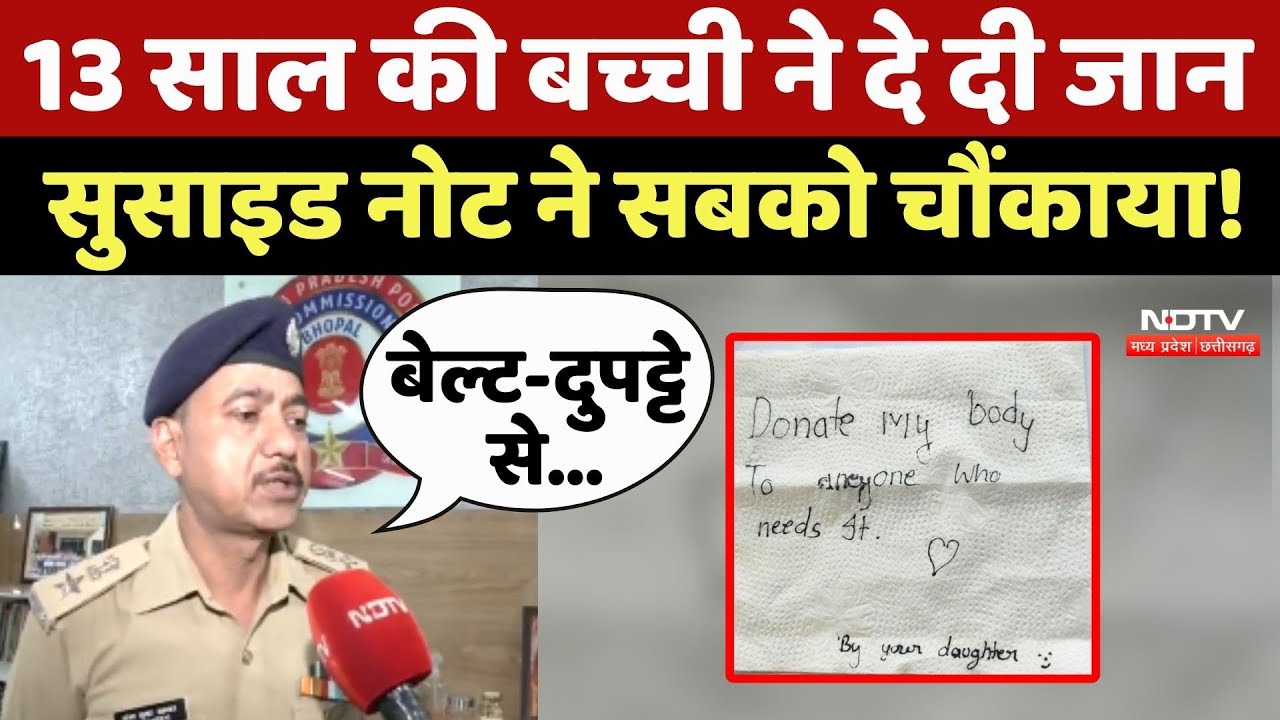 13 साल की बच्ची ने दे दी जान
सुसाइड नोट ने सबको चौंकाया!
PRADESH PO
COMMISSION
BHOPAL
बेल्ट-दुपट्टे
से...
NDTV
NDTV
मध्य प्रदेश | छत्तीसगढ़
Donate My body
To aneyone who
needs It.
By your daughter